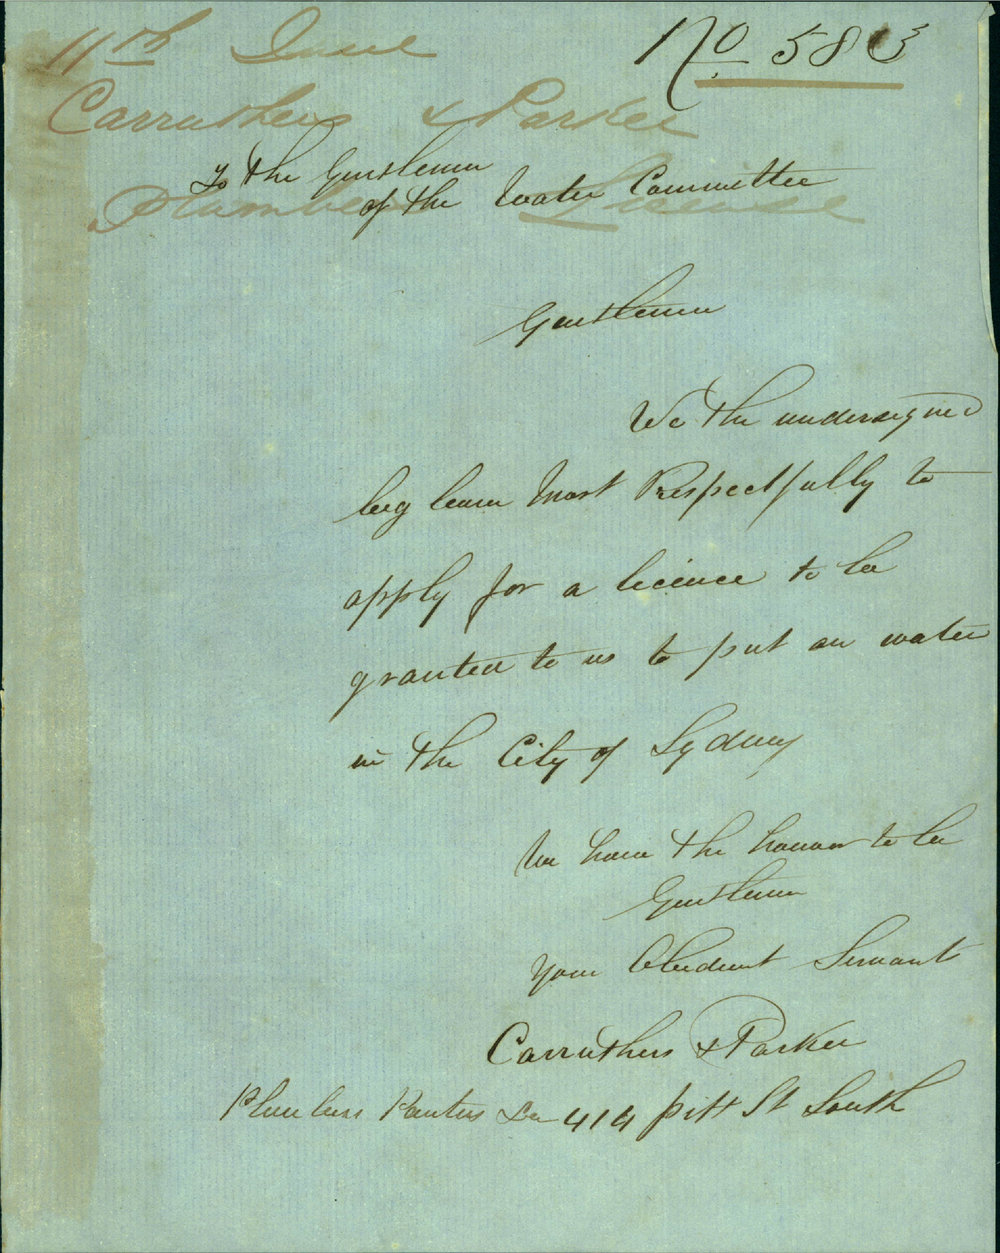 11th June
No 583
Carruthers & Parker
Plumbers License
To the Gentlemen
of the Water Committee
Gentlemen
We the undersigned
beg leave Most Respectfully to
apply for a licience to be
granted to us to put on water
in the City of Sydney
We have the honour to be
Gentlemen
Your Obedient Servants
Carruthers & Parker
Plumbers Painters &c 414 Pitt St South